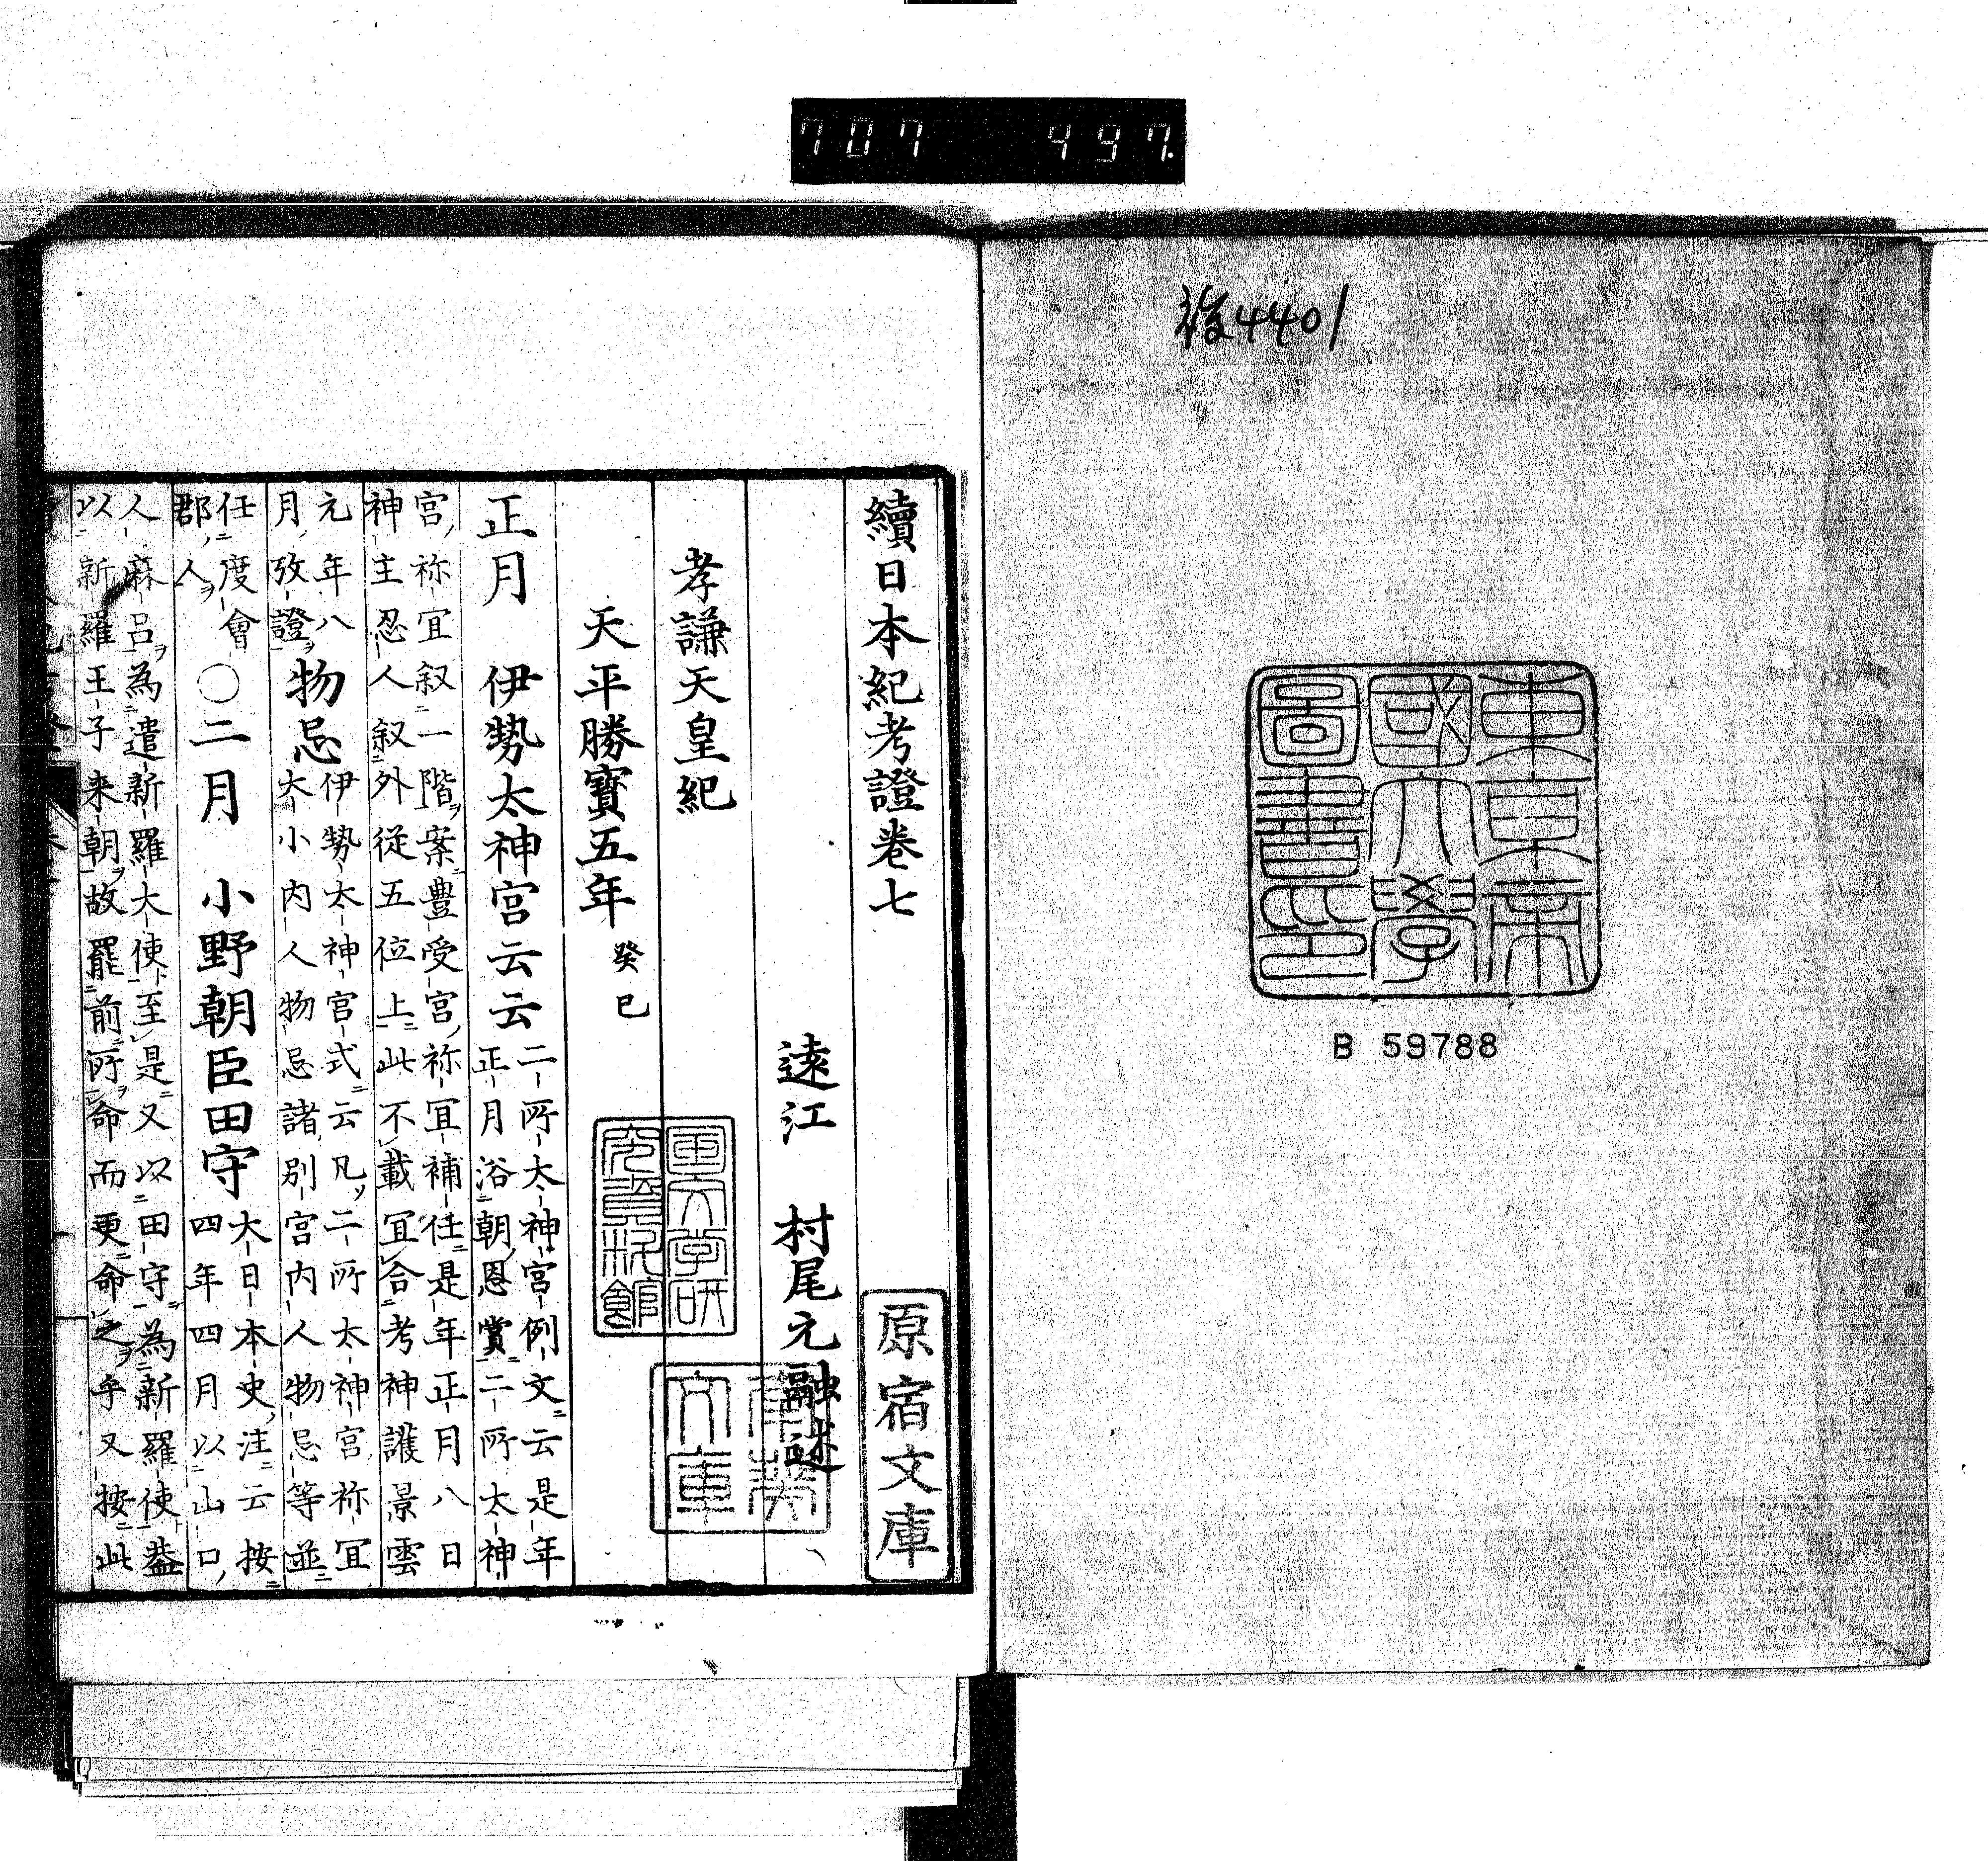 707 497.
複4401
東京帝
國大學
圖書印
B 59788
續日本紀考證卷七
原宿文庫
遠江 村尾元融述
孝謙天皇紀
天平勝寶五年 癸巳
正月 伊勢太神宮云云
二所太神宮例文云是年
正月浴朝恩賞二所太神
宮祢宜叙一階案豊受宮祢宜補任是年正月八日
神主忍人叙外從五位上此不載宜合考神護景雲
元年八
月攷證
物忌
伊勢太神宮式云凡二所太神宮祢宜
大小內人物忌諸別宮內人物忌等並
任度會
郡人
〇二月 小野朝臣田守
大日本史注云按
四年四月以山口
人麻呂為遣新羅大使至是又以田守為新羅使蓋
以新羅王子来朝故罷前所命而更命之乎又按此